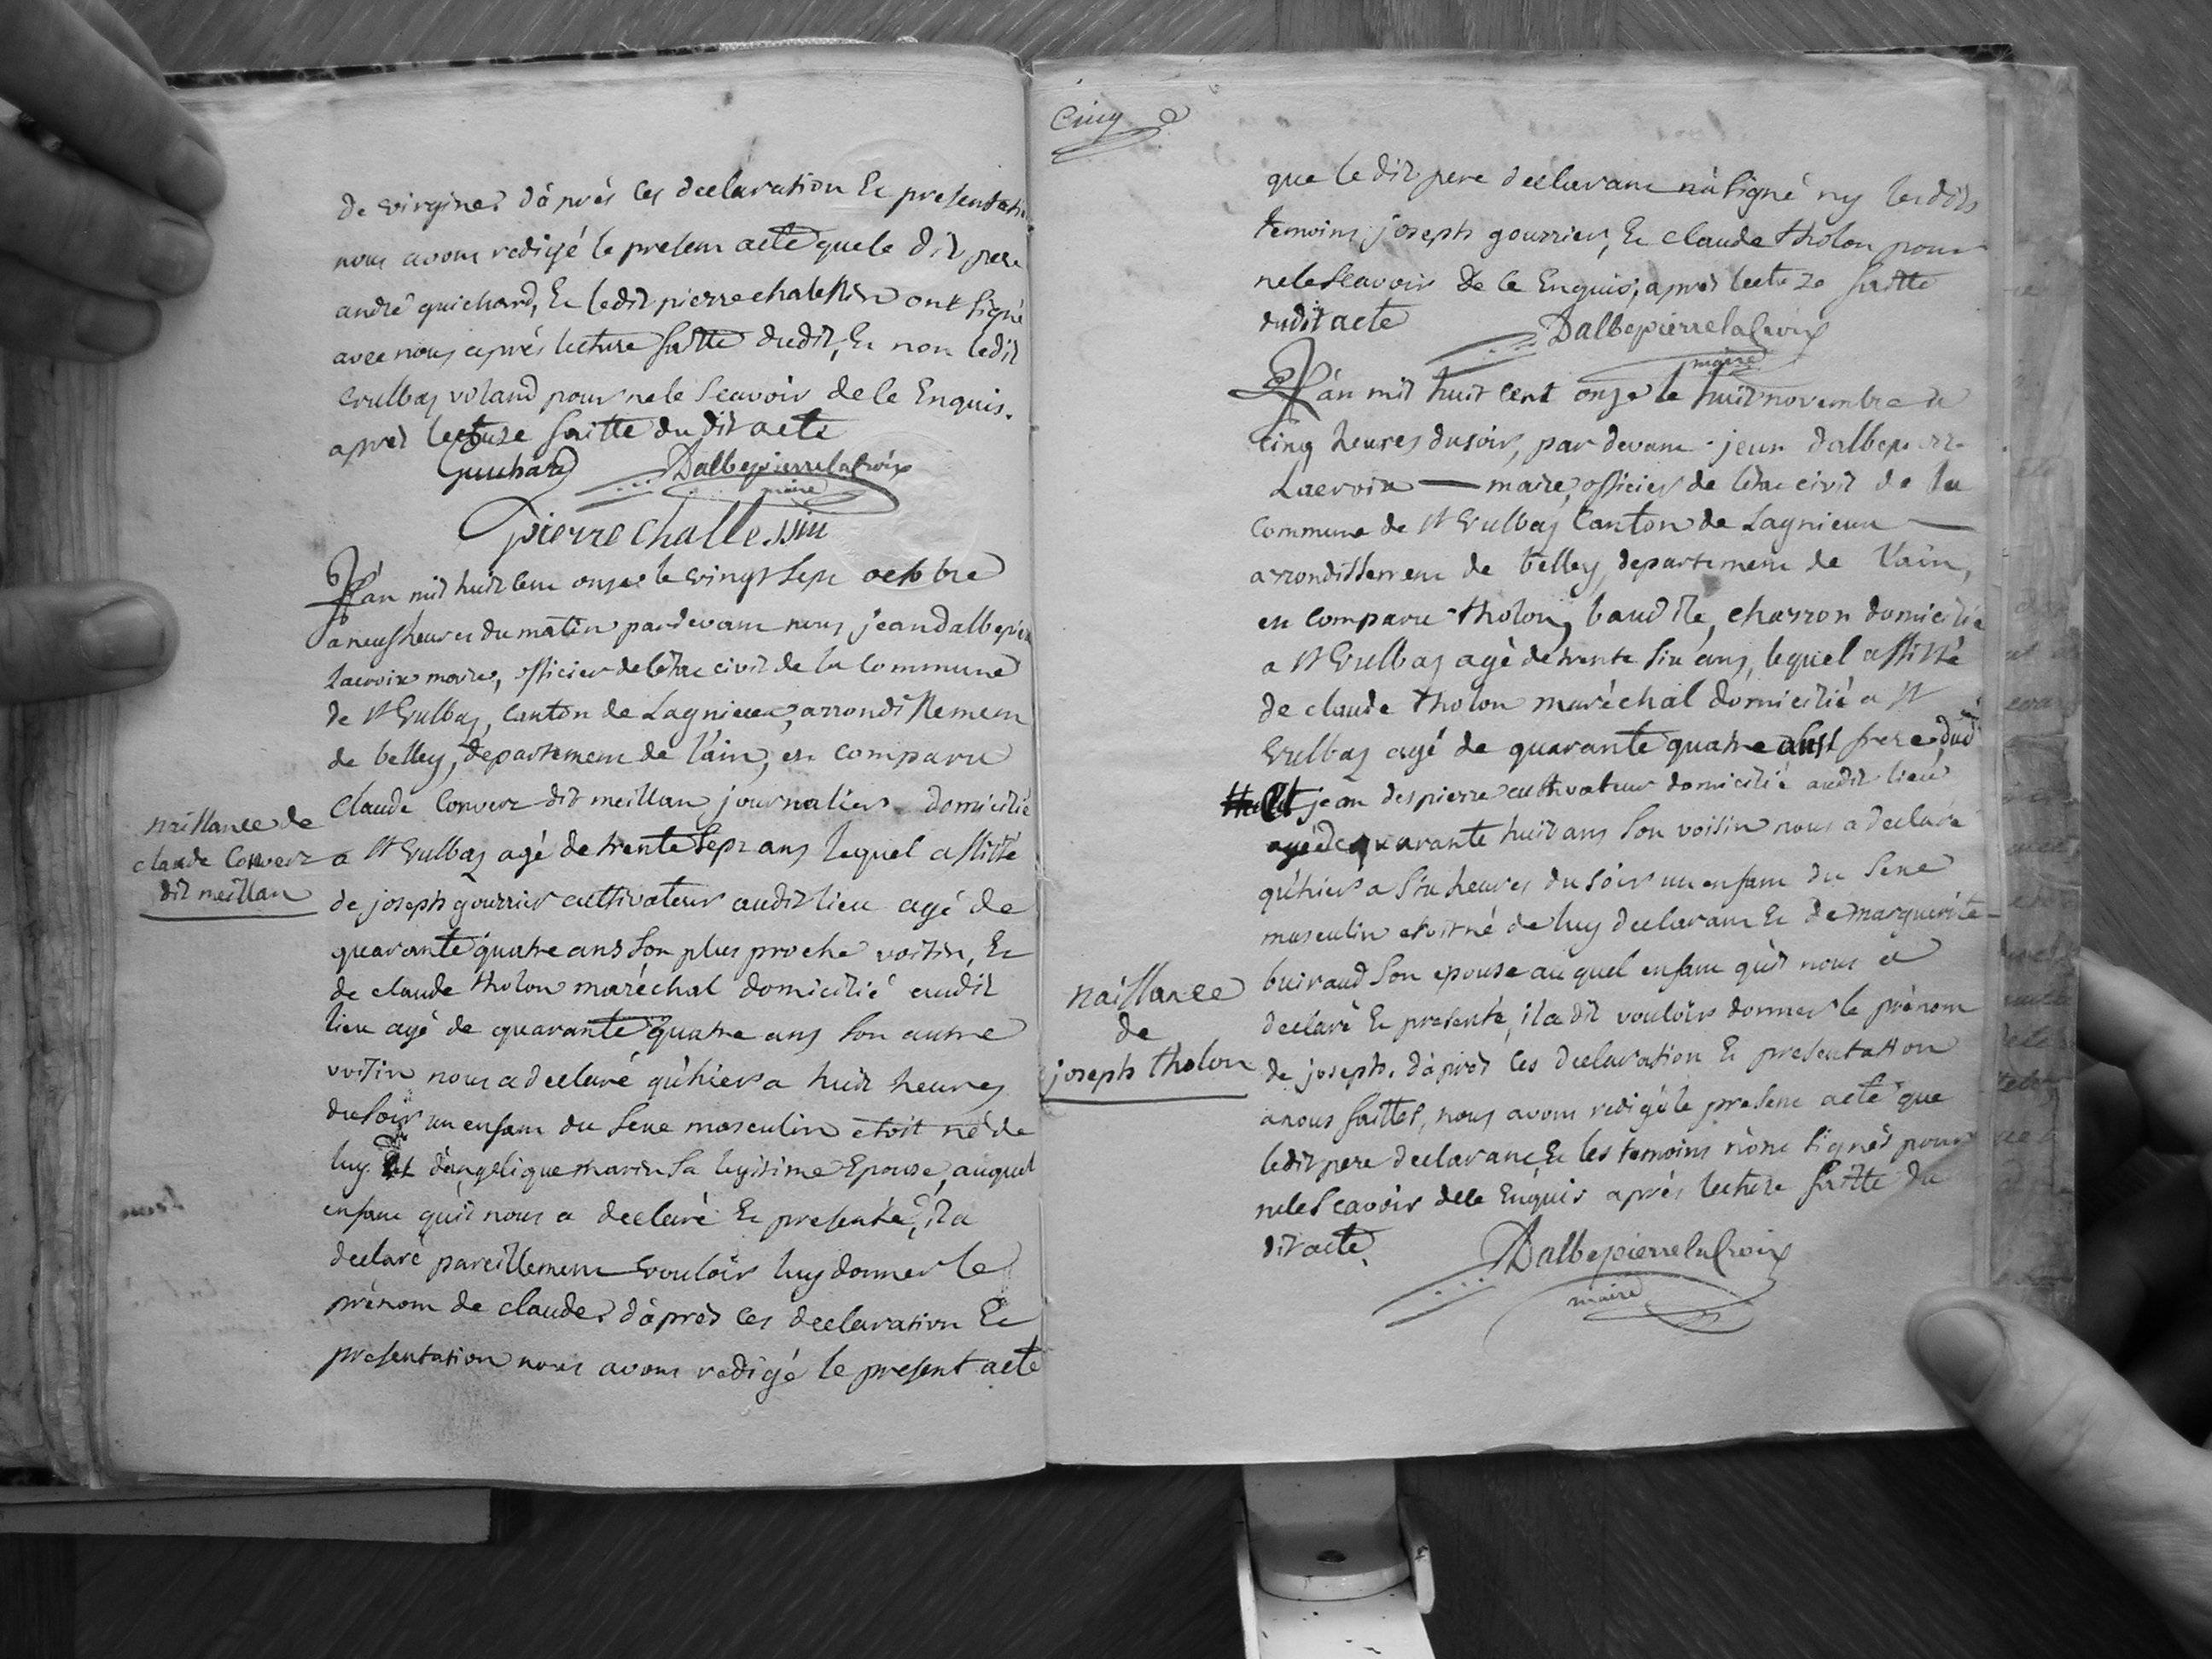 de virgine. d'après ces declaration Et presentati
nous avons redigé le present acte que le dit pere
andré guichard, Et ledit pierre chalessin ont signé
avec nous après lecture faitte dudit, Et non ledit
vulbas voland pour ne le scavoir de ce Enquis.
après lecture faitte du dit acte
Guichard Dalbepierrelacroix
maire
pierre challessin
L'an mil huit cent onze le vingt sept octobre
a neuf heures du matin pardevant nous jean dalbepierre
Lacroix maire, officier de létat civil de la commune
de st Vulbas, canton de Lagnieux, arrondissement
de belley, departement de l'ain, est comparu
Claude Convert dit meillan journalier domicilié
a st Vulbas agé de trente sept ans lequel assisté
de joseph gourrier cultivateur audit lieu agé de
quarante quatre ans son plus proche voisin, Et
de claude tholon maréchal domicilié audit
lieu agé de quarante quatre ans son autre
voisin nous a declaré qu'hier a huit heures
du soir un enfant du sexe masculin etoit né de
luy Et d'angelique marin sa legitime Epouse, auquel
enfant qu'il nous a declaré Et presenté, il a
declaré pareillement vouloir luy donner le
prénom de claude. d'après ces declaration Et
presentation nous avons redigé le present acte
naissance de
claude Convert
dit meillan
Cinq
que le dit pere déclarant n'a signé ny lesdits
temoins joseph gourrier, Et claude tholon pour
ne le scavoir de ce Enquis, après lecture faitte
dudit acte Dalbepierrelacroix
maire
L'an mil huit cent onze le huit novembre a
cinq heures du soir, par devant jean dalbepierre
Lacroix maire, officier de létat civil de la
commune de st Vulbas Canton de Lagnieux
arrondissement de belley, departement de l'ain,
est comparu tholon, baudile, charron domicilié
a st Vulbas agé de trente six ans, lequel assisté
de claude tholon maréchal domicilié a st
Vulbas agé de quarante quatre ans frere dud
Et jean despierre cultivateur domicilié audit lieu
agé de quarante huit ans son voisin nous a declaré
qu'hier a six heures du soir un enfant du sexe
masculin etoit né de luy declarant Et de marguerite
buiraud son epouse auquel enfant qu'il nous a
declaré Et presenté, il a dit vouloir donner le prénom
de joseph. d'après ces declaration Et presentation
a nous faittes, nous avons redigé le present acte que
ledit pere declarant, Et les temoins n'ont signés pour
ne le scavoir de ce Enquis après lecture faitte du
dit acte. Dalbepierrelacroix
maire
naissance
de
joseph tholon